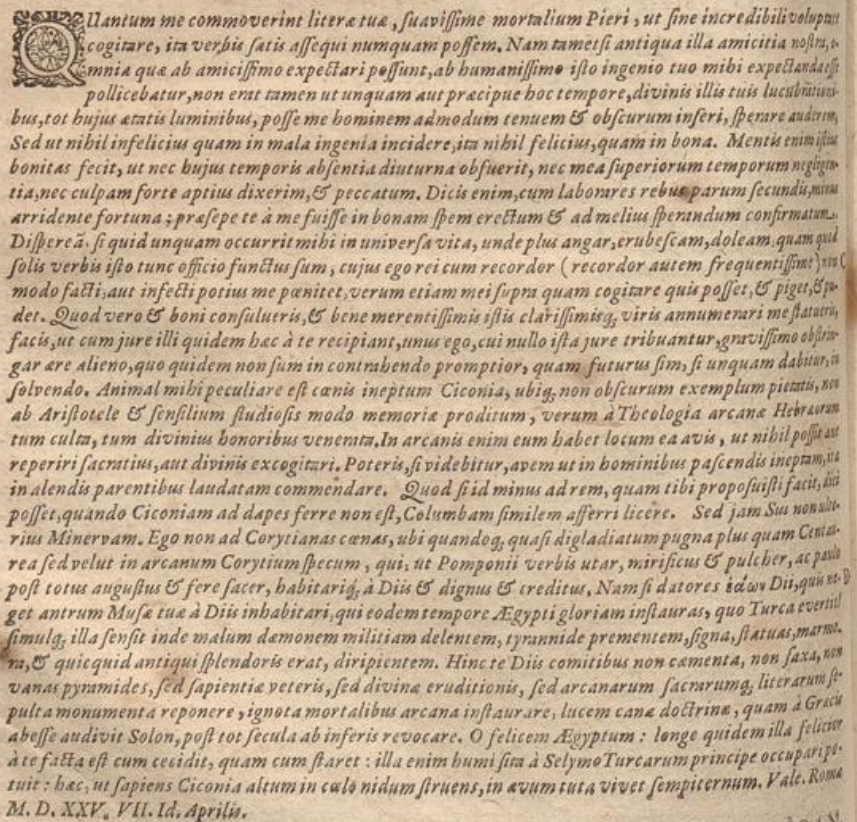 QUantum me commoverint literæ tuæ, suavissime mortalium Pieri, ut sine incredibili voluptate
cogitare, ita verbis satis assequi numquam possem. Nam tametsi antiqua illa amicitia nostra, o-
mnia quæ ab amicissimo expectari possunt, ab humanissimo isto ingenio tuo mihi expectanda esse
pollicebatur, non erat tamen ut unquam aut præcipue hoc tempore, divinis illis tuis lucubrationi-
bus, tot hujus ætatis luminibus, posse me hominem admodum tenuem & obscurum inseri, sperare auderem,
Sed ut nihil infelicius quam in mala ingenia incidere, ita nihil felicius, quam in bona. Mentis enim istius
bonitas fecit, ut nec hujus temporis absentia diuturna obfuerit, nec mea superiorum temporum negligen-
tia, nec culpam forte aptius dixerim, & peccatum. Dicis enim, cum laborares rebus parum secundis, minus
arridente fortuna; præsepe te à me fuisse in bonam spem erectum & ad melius sperandum confirmatum.
Dispereā, si quid unquam occurrit mihi in universa vita, unde plus angar, erubescam, doleam, quam quod
solis verbis isto tunc officio functus sum, cujus ego rei cum recordor (recordor autem frequentissime) non
modo facti, aut infecti potius me pœnitet, verum etiam mei supra quam cogitare quis posset, & piget, & pu-
det. Quod vero & boni consulueris, & bene merentissimis istis clarissimisq; viris annumerari me statueris,
facis, ut cum jure illi quidem hæc à te recipiant, unus ego, cui nullo ista jure tribuantur, gravissimo obstrin-
gar ære alieno, quo quidem non sum in contrahendo promptior, quam futurus sim, si unquam dabitur, in
solvendo. Animal mihi peculiare est cœnis ineptum Ciconia, ubiq; non obscurum exemplum pietatis, non
ab Aristotele & sensilium studiosis modo memoriæ proditum, verum à Theologia arcana Hebræorum
tum culta, tum divinius honoribus venerata. In arcanis enim eum habet locum ea avis, ut nihil possit aut
reperiri sacratius, aut divinis excogitari. Poteris, si videbitur, avem ut in hominibus pascendis ineptam, ita
in alendis parentibus laudatam commendare. Quod si id minus ad rem, quam tibi proposuisti facit, dici
posset, quando Ciconiam ad dapes ferre non est, Columbam similem afferri licere. Sed jam Sus non ulte-
rius Minervam. Ego non ad Corytianas cœnas, ubi quandoq; quasi digladiatum pugna plus quam Centau-
rea sed velut in arcanum Corytium specum, qui, ut Pomponii verbis utar, mirificus & pulcher, ac paulo
post totus augustus & fere sacer, habitariq; à Diis & dignus & creditus, Nam si datores ἐάων Dii, quis ne-
get antrum Musæ tuæ à Diis inhabitari, qui eodem tempore Ægypti gloriam instauras, quo Turca evertit
simulq; illa sensit inde malum dæmonem militiam delentem, tyrannide prementem, signa, statuas, marmo-
ra, & quicquid antiqui splendoris erat, diripientem. Hinc te Diis comitibus non cæmenta, non saxa, non
vanas pyramides, sed sapientiæ veteris, sed divinæ eruditionis, sed arcanarum sacrarumq; literarum se-
pulta monumenta reponere, ignota mortalibus arcana instaurare, lucem canæ doctrinæ, quam à Græcis
abesse audivit Solon, post tot secula ab inferis revocare. O felicem Ægyptum: longe quidem illa felicior
à te facta est cum cecidit, quam cum staret: illa enim humi sita à Selymo Turcarum principe occupari po-
tuit: hæc, ut sapiens Ciconia altum in cœlo nidum struens, in ævum tuta vivet sempiternum. Vale. Romæ
M. D. XXV. VII. Id. Aprilis.